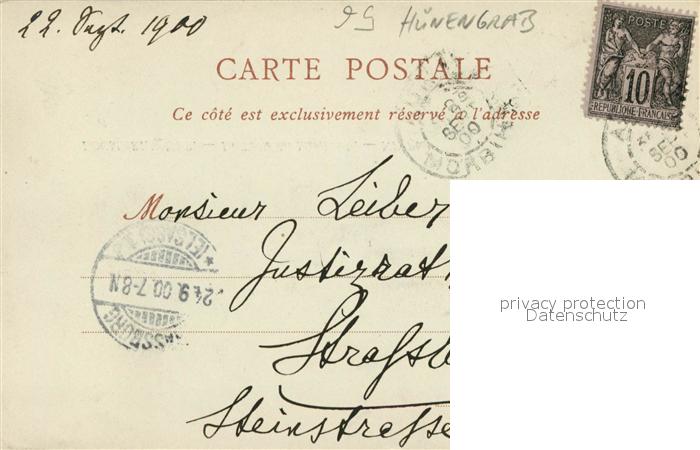 22. Sept. 1900
HÜNENGRAB
POSTE
10
REPUBLIQUE FRANCAISE
CARTE POSTALE
Ce côté est exclusivement réservé à l'adresse
MORBIHAN
Monsieur Leiber
Justizrat
24.9.00.7-8N
Strassb
Steinstrasse
privacy protection
Datenschutz